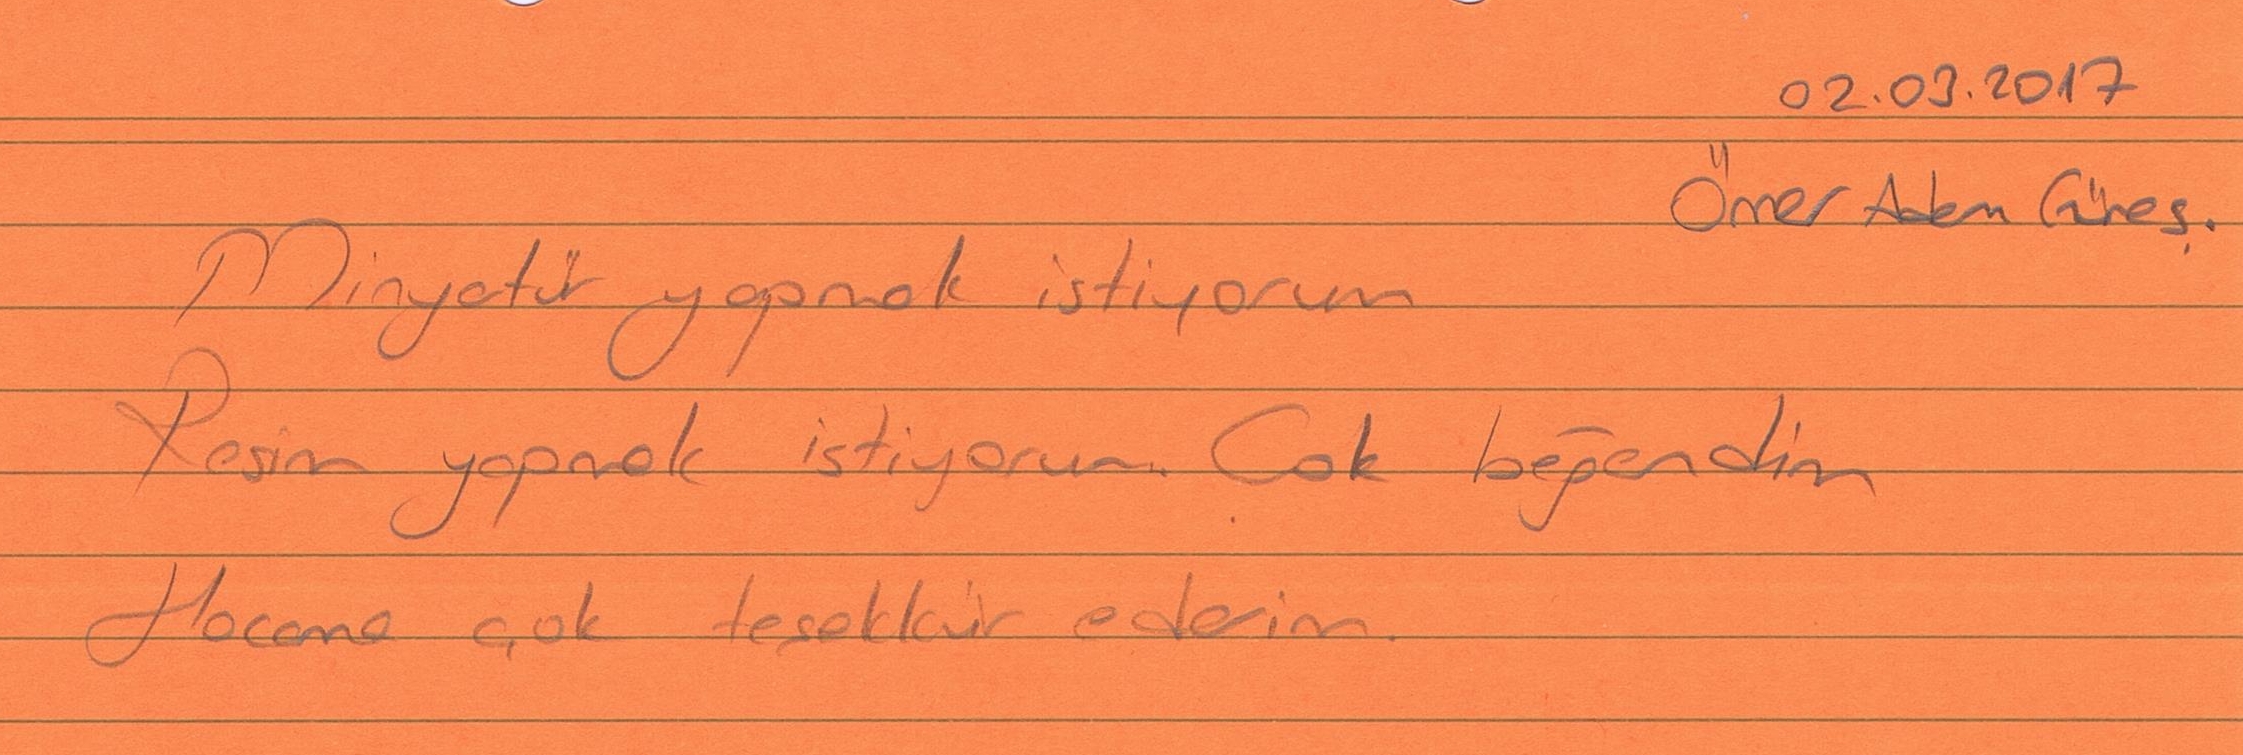 02.03.2017
Ömer Adem Güneş.
Minyatür yapmak istiyorum
Resim yapmak istiyorum. Çok beğendim
Hocama çok teşekkür ederim.